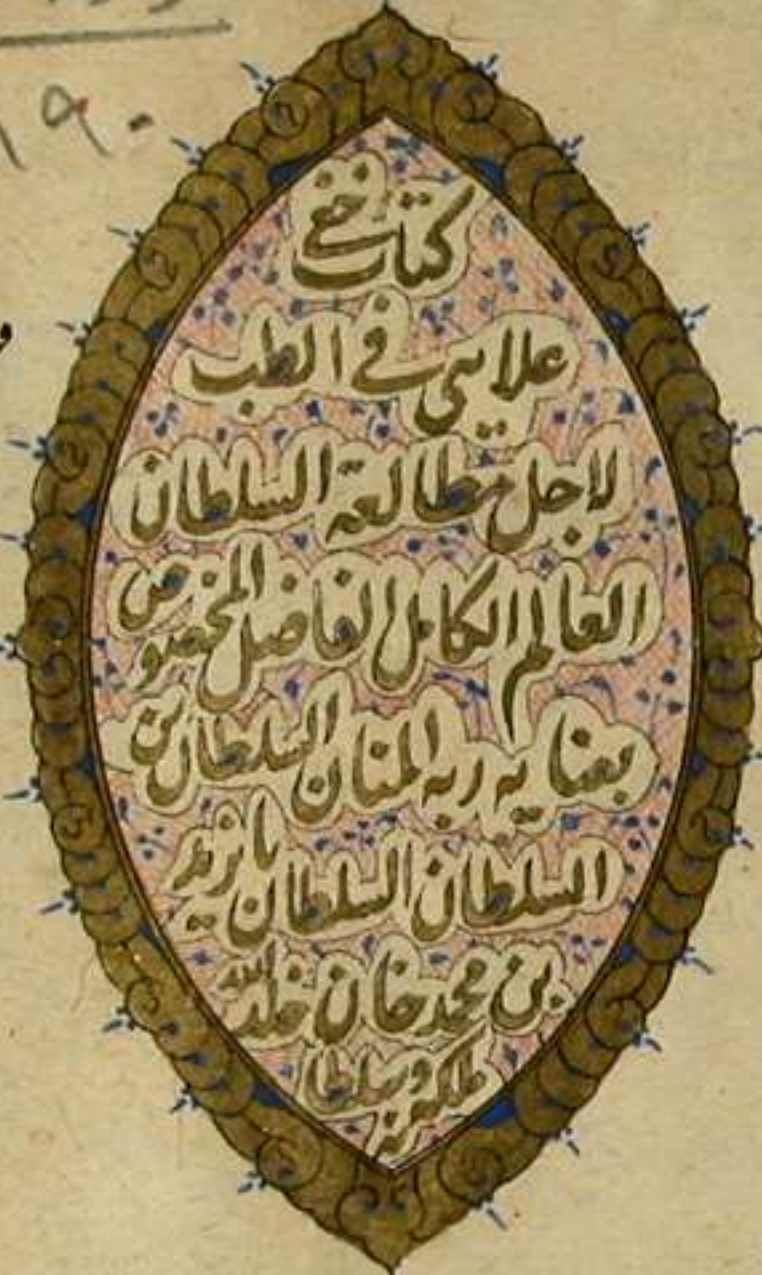 ١٩٠
كتاب خفي
علايى في الطب
لاجل مطالعة السلطان
العالم الكامل الفاضل المخصوص
بعنايه ربه المنان السلطان بن
السلطان السلطان بايزيد
بن محمد خان خلد الله
ملكه وسلطانه